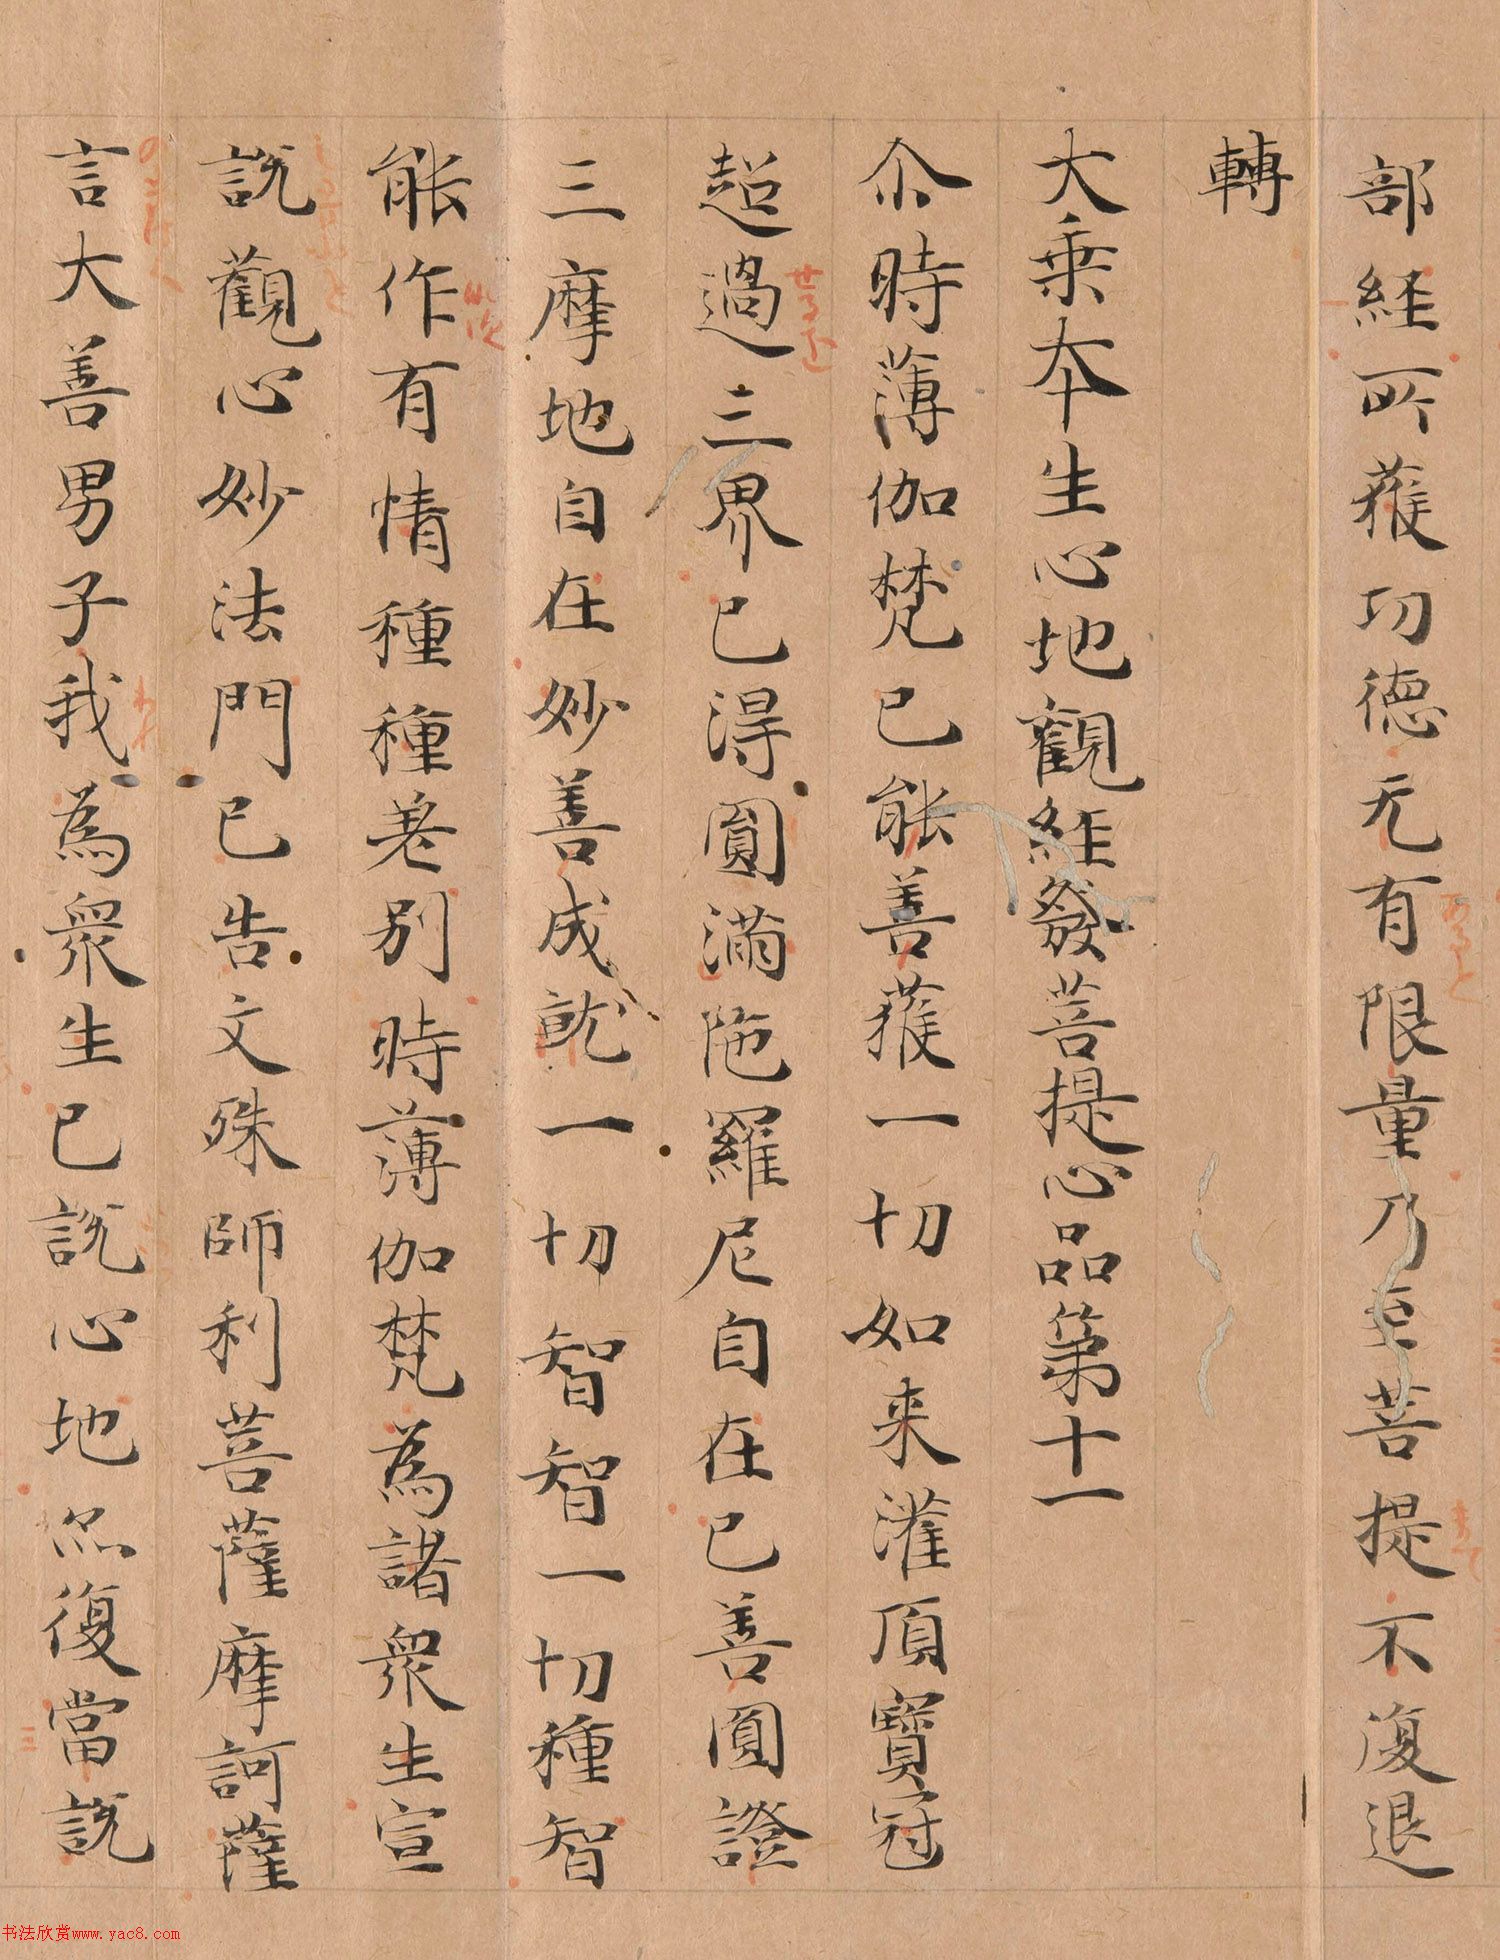 部経所獲功徳无有限量乃至菩提不復退
轉
大乗夲生心地觀経發菩提心品第十一
尒時薄伽梵已能善獲一切如来灌頂寶冠
超過三界已得圓滿陁羅尼自在已善圓證
三摩地自在妙善成就一切智智一切種智
能作有情種種差別時薄伽梵為諸衆生宣
說觀心妙法門已告文殊師利菩薩摩訶薩
言大善男子我為衆生已說心地亦復當說
书法欣赏www.yac8.com